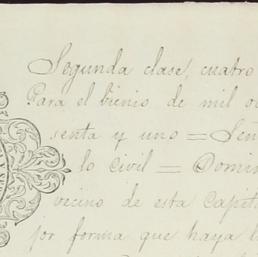 Segunda clase, cuatro
Para el bienio de mil o
senta y uno = Señ
lo civil = Domin
vecino de esta Capit
por forma que haya l